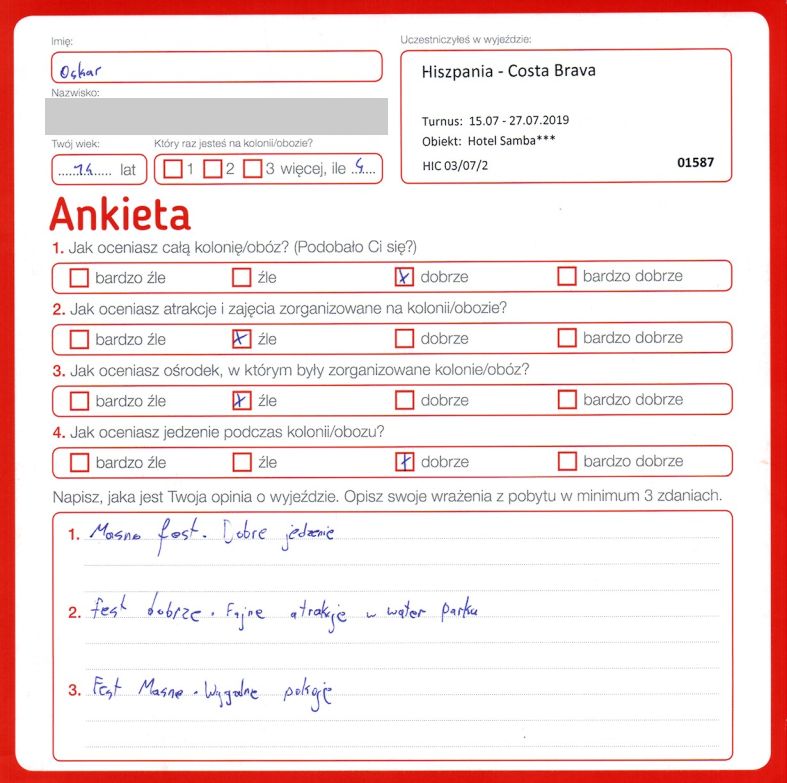 Imię:
Oskar
Nazwisko:
Uczestniczyłeś w wyjeździe:
Hiszpania - Costa Brava
Turnus: 15.07 - 27.07.2019
Obiekt: Hotel Samba***
HIC 03/07/2 01587
Twój wiek:
......14...... lat
Który raz jesteś na kolonii/obozie?
1 2 3 więcej, ile ..4....
Ankieta
1. Jak oceniasz całą kolonię/obóz? (Podobało Ci się?)
bardzo źle źle x dobrze bardzo dobrze
2. Jak oceniasz atrakcje i zajęcia zorganizowane na kolonii/obozie?
bardzo źle x źle dobrze bardzo dobrze
3. Jak oceniasz ośrodek, w którym były zorganizowane kolonie/obóz?
bardzo źle x źle dobrze bardzo dobrze
4. Jak oceniasz jedzenie podczas kolonii/obozu?
bardzo źle źle x dobrze bardzo dobrze
Napisz, jaka jest Twoja opinia o wyjeździe. Opisz swoje wrażenia z pobytu w minimum 3 zdaniach.
1. Masno fest. Dobre jedzenie
2. fest dobrze. Fajne atrakcje w water parku
3. Fest Masno. Wygodne pokoje